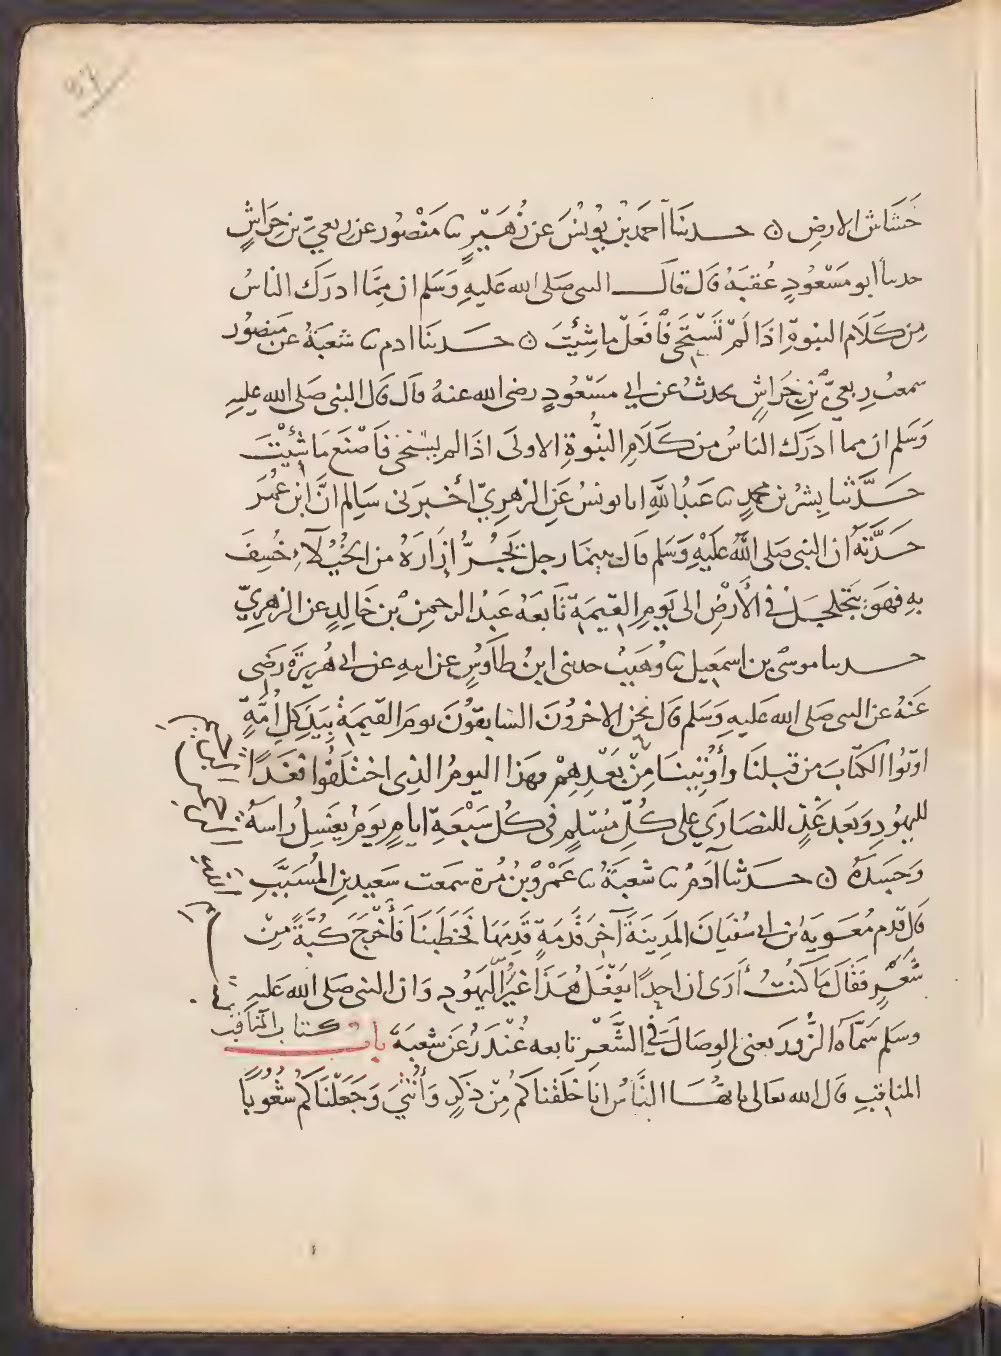 خَشَاش الارضِ ن حدثنَا احمد بنُ يُونُسَ عن زُهَيْرٍ نا مَنْصُور عن رِبعيّ بن حِرَاشٍ
حدثنا ابو مَسْعُودٍ عُقبَةُ قال قال النبى صَلى الله عَليهِ وَسَلم ان مِمَّا ادرَكَ الناسُ
مِن كَلَام النبوةِ اذَا لَمْ تَسْتَحْى فَافعَلْ ما شِئتَ ن حدثنَا ادم نا شعبَةُ عَن مَنصُور
سمعتُ رِبعيَّ بنِ حِرَاشٍ يحدثُ عن ابي مَسْعُودٍ رضى الله عنهُ قال قال النبى صَلى الله عليه
وَسَلم ان مما ادرَك الناسُ من كَلَامِ النبُّوةِ الاولَى اذَا لم تستَحْى فَاصْنَع مَا شئْتَ
حَدَّثنا بِشرُ بن محمدٍ نا عَبدُ اللَّهِ انا يونسُ عَنِ الزهرِيّ أخبرَنى سَالِم انَّ ابْنَ عُمَر
حَدَّثَهُ ان النبى صَلى اللَّهُ عَلَيْهِ وَسَلم قال بينمَا رجل يَجُرُّ إزَارَهُ من الخُيَلَاءِ خُسِفَ
بِهِ فهوَ يَتَجَلجَلُ في الأَرْضِ الى يَومِ القِيمَةِ تَابَعَهُ عَبدُ الرحمنِ بنُ خَالِدٍ عن الزهريّ
حدثنا موسى بن اسمعِيل نا وُهَيبُ حدثنى ابنُ طاوُسٍ عن ابيه عن ابى هُرِيرَةَ رَضى
عَنهُ عن النبى صَلى الله عَليهِ وَسَلم قال نحن الاخرُونَ السَّابِقُونَ يومَ القيمَةِ بَيْدَ كل أُمَّةٍ
اوتُوا الكتَابَ من قبلنَا وأُوتِينَا مِنْ بَعْدِهِمْ فهَذا اليومُ الذِى اختلَفُوا فغَدًا
لليهُودِ وَبعدَ غَدٍ للنصَارَى على كُلِّ مُسْلِمٍ فى كُل سَبْعَةِ ايامٍ يَومٌ يغسِلُ راسَهُ
وَجَسَدَهُ ن حدثنَا آدَمُ نا شعبَةُ نا عَمْرُو بْنُ مُرة سمعت سَعِيد بن المُسَيَّبِ
قال قَدِم مُعَويَةُ بن ابي سُفيَانَ المَدِينَةَ آخِرَ قَدمَةٍ قَدِمَهَا فخَطَبنَا فَأَخْرَجَ كُبَّةً مِنْ
شَعْرٍ فقَالَ مَا كُنْتُ أُرَى ان احدًا يَفْعَلُ هَذَا غَيْرُ اليَهُودِ وَان النبى صَلى الله عَليهِ
وسَلم سَمَّاهُ الزُّورَ يعنى الوِصَال في الشَّعْرِ تابعه غُنْدَرٌ عَن شعبَةَ باب كتاب المناقب
المناقبِ قال الله تعالى يايُّهَا النَّاسُ انا خلَقناكم مِنْ ذكرٍ وَأُنْثَى وَجَعَلنَاكمْ شعُوبًا